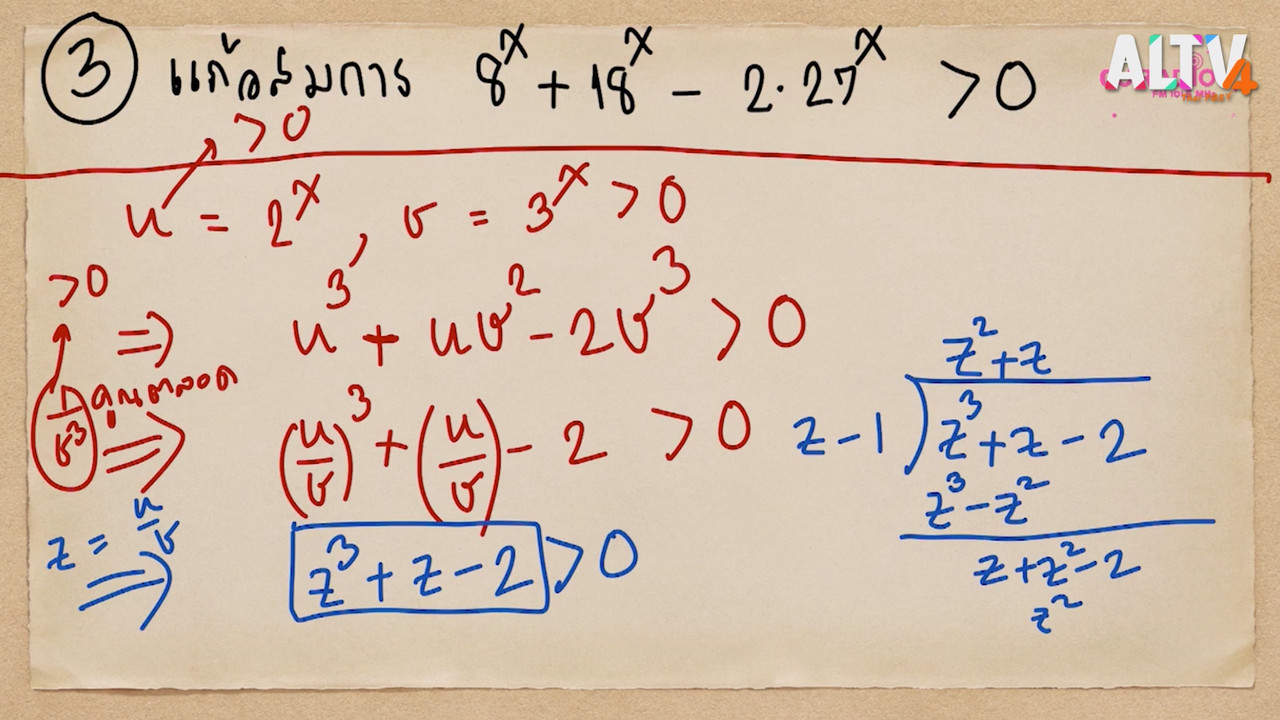 ③ แก้อสมการ 8^x + 18^x - 2·27^x > 0
> 0
u = 2^x , v = 3^x > 0
> 0
⇒ u^3 + uv^2 - 2v^3 > 0
1/v^3 คูณตลอด
⇒ (u/v)^3 + (u/v) - 2 > 0
z = u/v
⇒ z^3 + z - 2 > 0
z^2 + z
z - 1 ) z^3 + z - 2
z^3 - z^2
z + z^2 - 2
z^2
ALTV 4